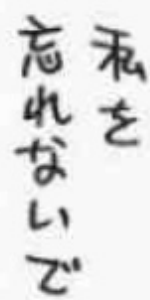 私を
忘れないで